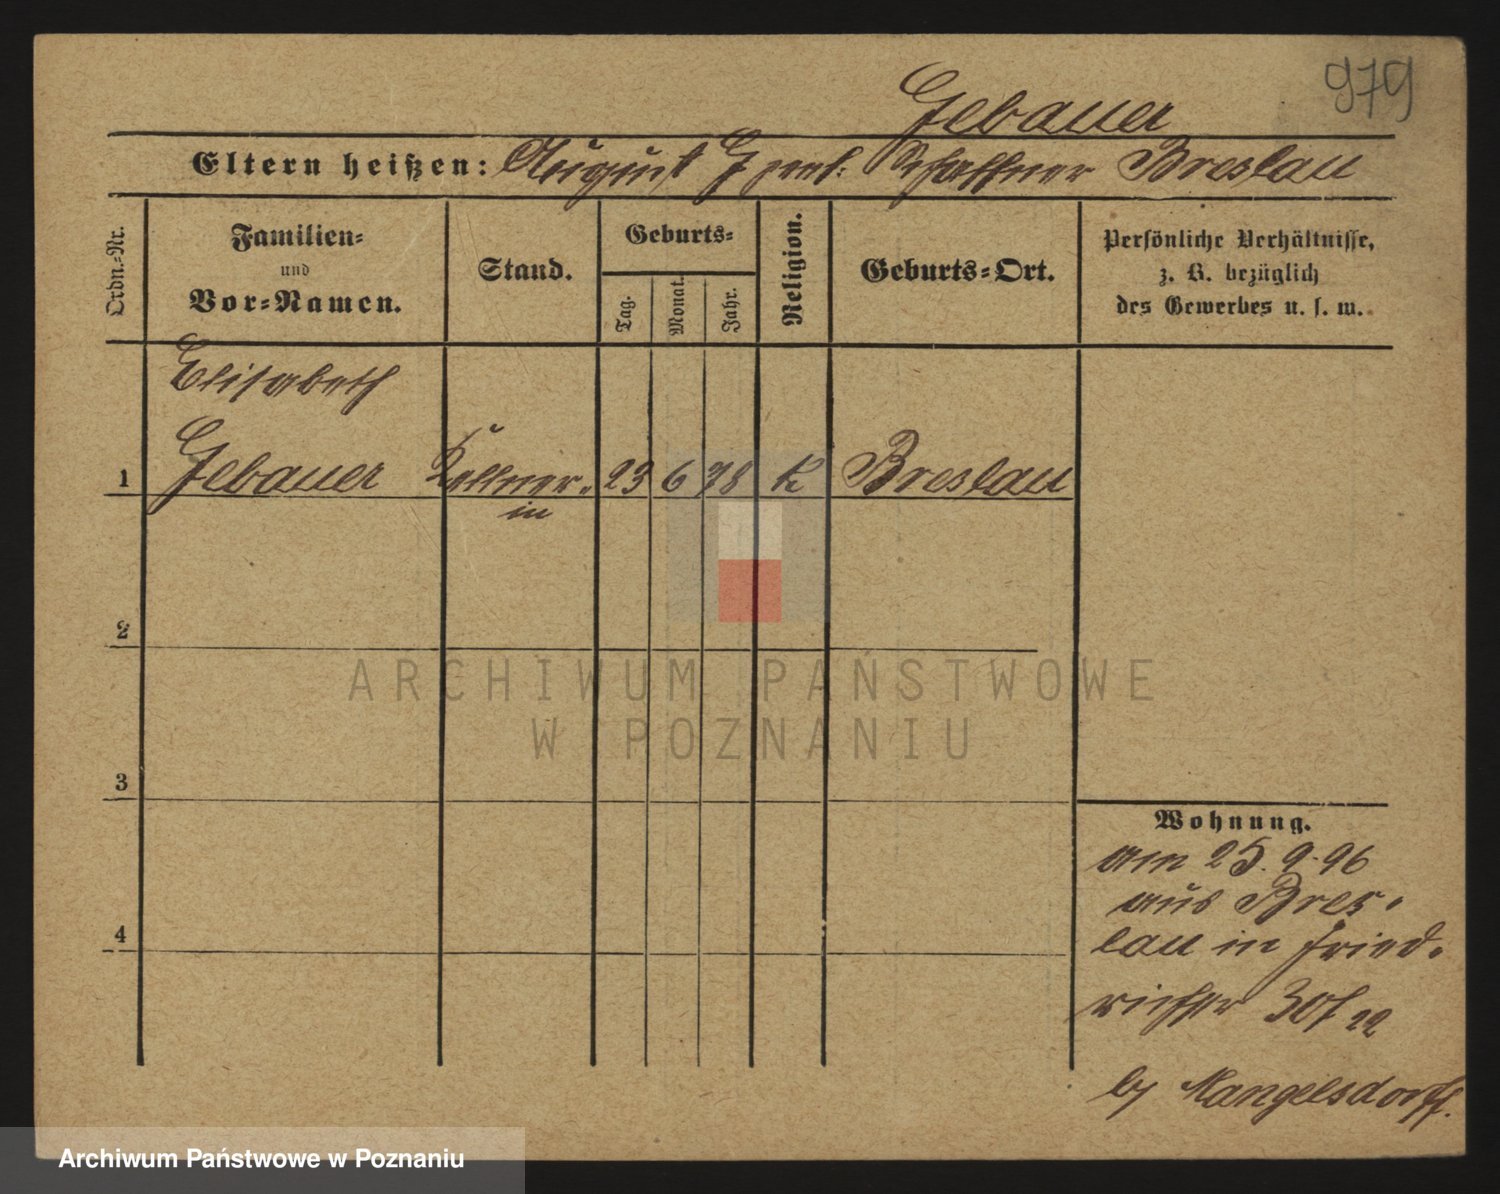 979
Gebauer
Eltern heißen: August G Schaffner Breslau
Ordn.-Nr.
Familien-
und
Vor-Namen.
Stand.
Geburts-
Tag.
Monat.
Jahr.
Religion.
Geburts-Ort.
Persönliche Verhältnisse,
z. B. bezüglich
des Gewerbes u. s. w.
Elisabeth
1 Gebauer Kellner- 23 6 78 K Breslau
in
2
3
4
Wohnung.
am 25. 9. 96
aus Bres-
lau in Fried-
richstr 30
by Mangelsdorff.
ARCHIWUM PAŃSTWOWE
W POZNANIU
Archiwum Państwowe w Poznaniu